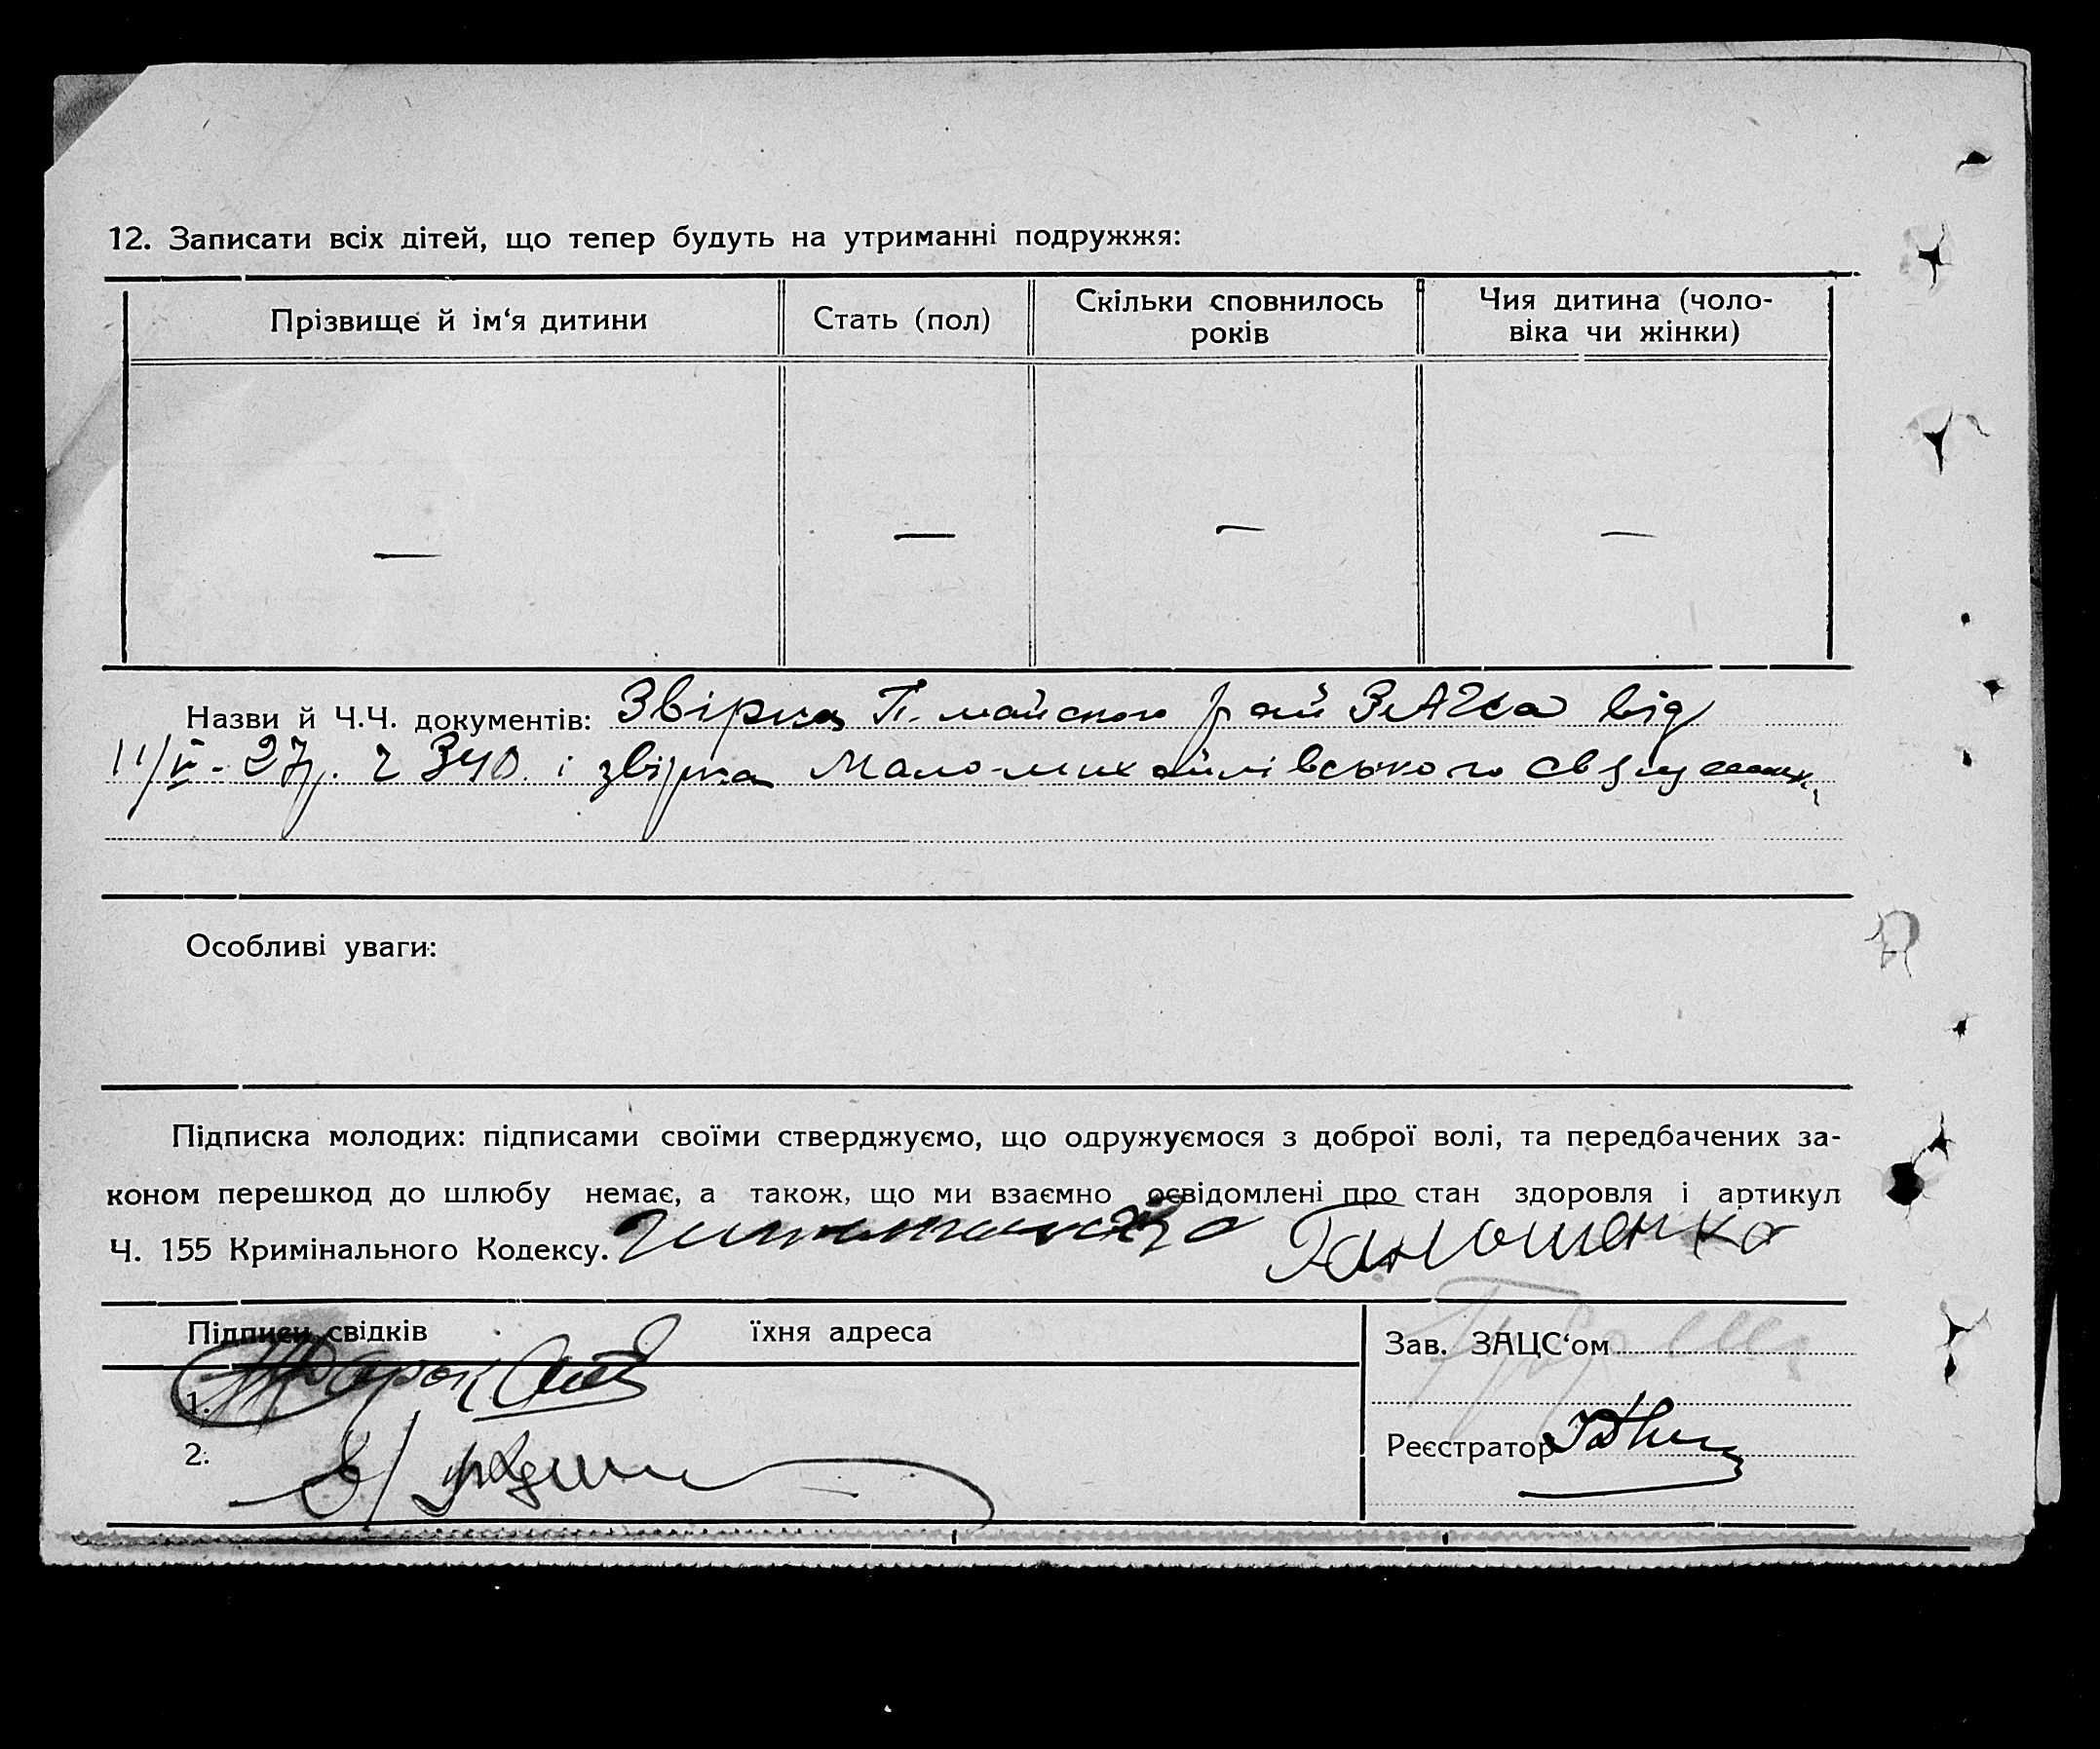 12. Записати всіх дітей, що тепер будуть на утриманні подружжя:
Прізвище й ім‘я дитини
Стать (пол)
Скільки сповнилось
років
Чия дитина (чоло-
віка чи жінки)
— — — —
Назви й Ч.Ч. документів: Звірка П. майского рай ЗАГСа від
11/V-27р. ч 340 і звірка Мало-михайлівського
Особливі уваги:
Підписка молодих: підписами своїми стверджуємо, що одружуємося з доброї волі, та передбачених за-
коном перешкод до шлюбу немає, а також, що ми взаємно освідомлені про стан здоровля і артикул
Ч. 155 Кримінального Кодексу. Ганошенко
Підписи свідків їхня адреса
1.
2.
Зав. ЗАЦС‘ом
Реєстратор